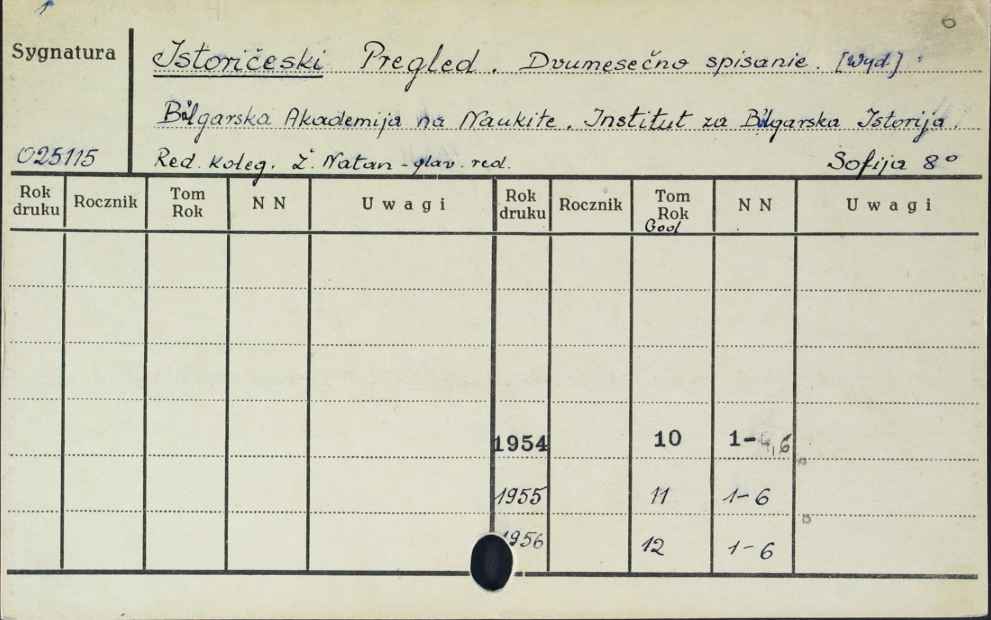 6
Sygnatura
Istoričeski Pregled. Dvumesečno spisanie. [Wyd.]
Bǎlgarska Akademija na Naukite. Institut za Bǎlgarska Istorija.
025115 Red. koleg. Ž. Natan - glav. red. Sofija 8°
Rok druku Rocznik Tom Rok NN Uwagi Rok druku Rocznik Tom Rok God NN Uwagi
1954 10 1-4,6
1955 11 1-6
1956 12 1-6